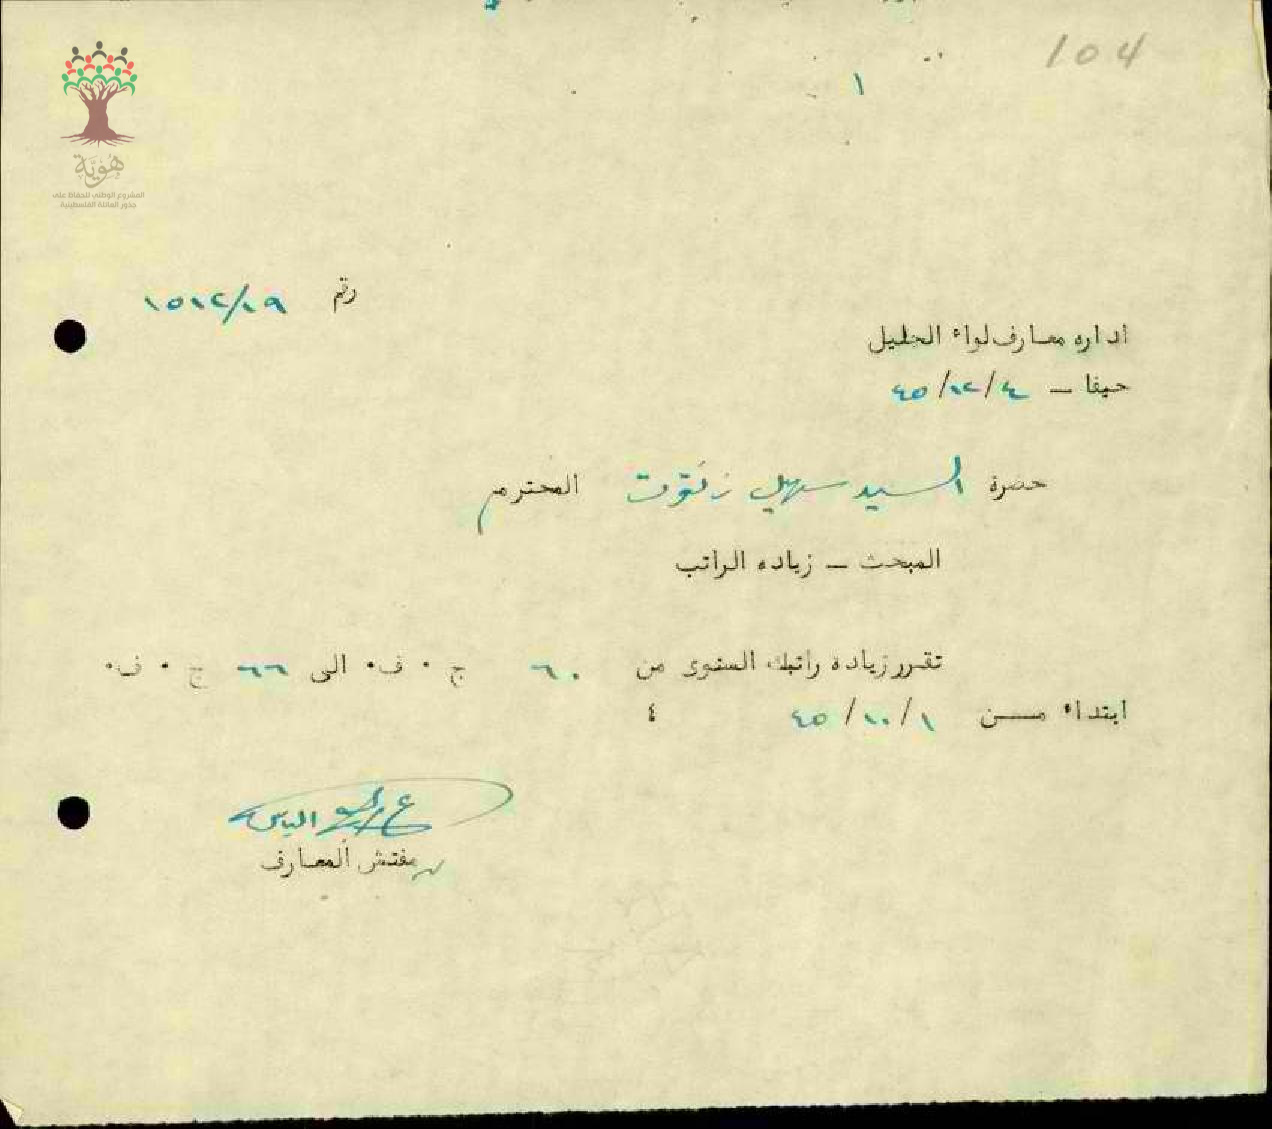 104
١
هُوِيَّة
المشروع الوطني للحفاظ على
جذور العائلة الفلسطينية
رقم ١٥١٢/١٩
اداره معارف لواء الجليل
حيفا – ٤٥/١٢/٤
حضرة السيد سهيل زنقوت المحترم
المبحث – زياده الراتب
تقرر زياده راتبك السنوى من ٦٠ ج٠ ف٠ الى ٦٦ ج٠ ف٠
ابتداء مـــن ٤٥/١٠/١ ٤
الياس
مفتش المعارف